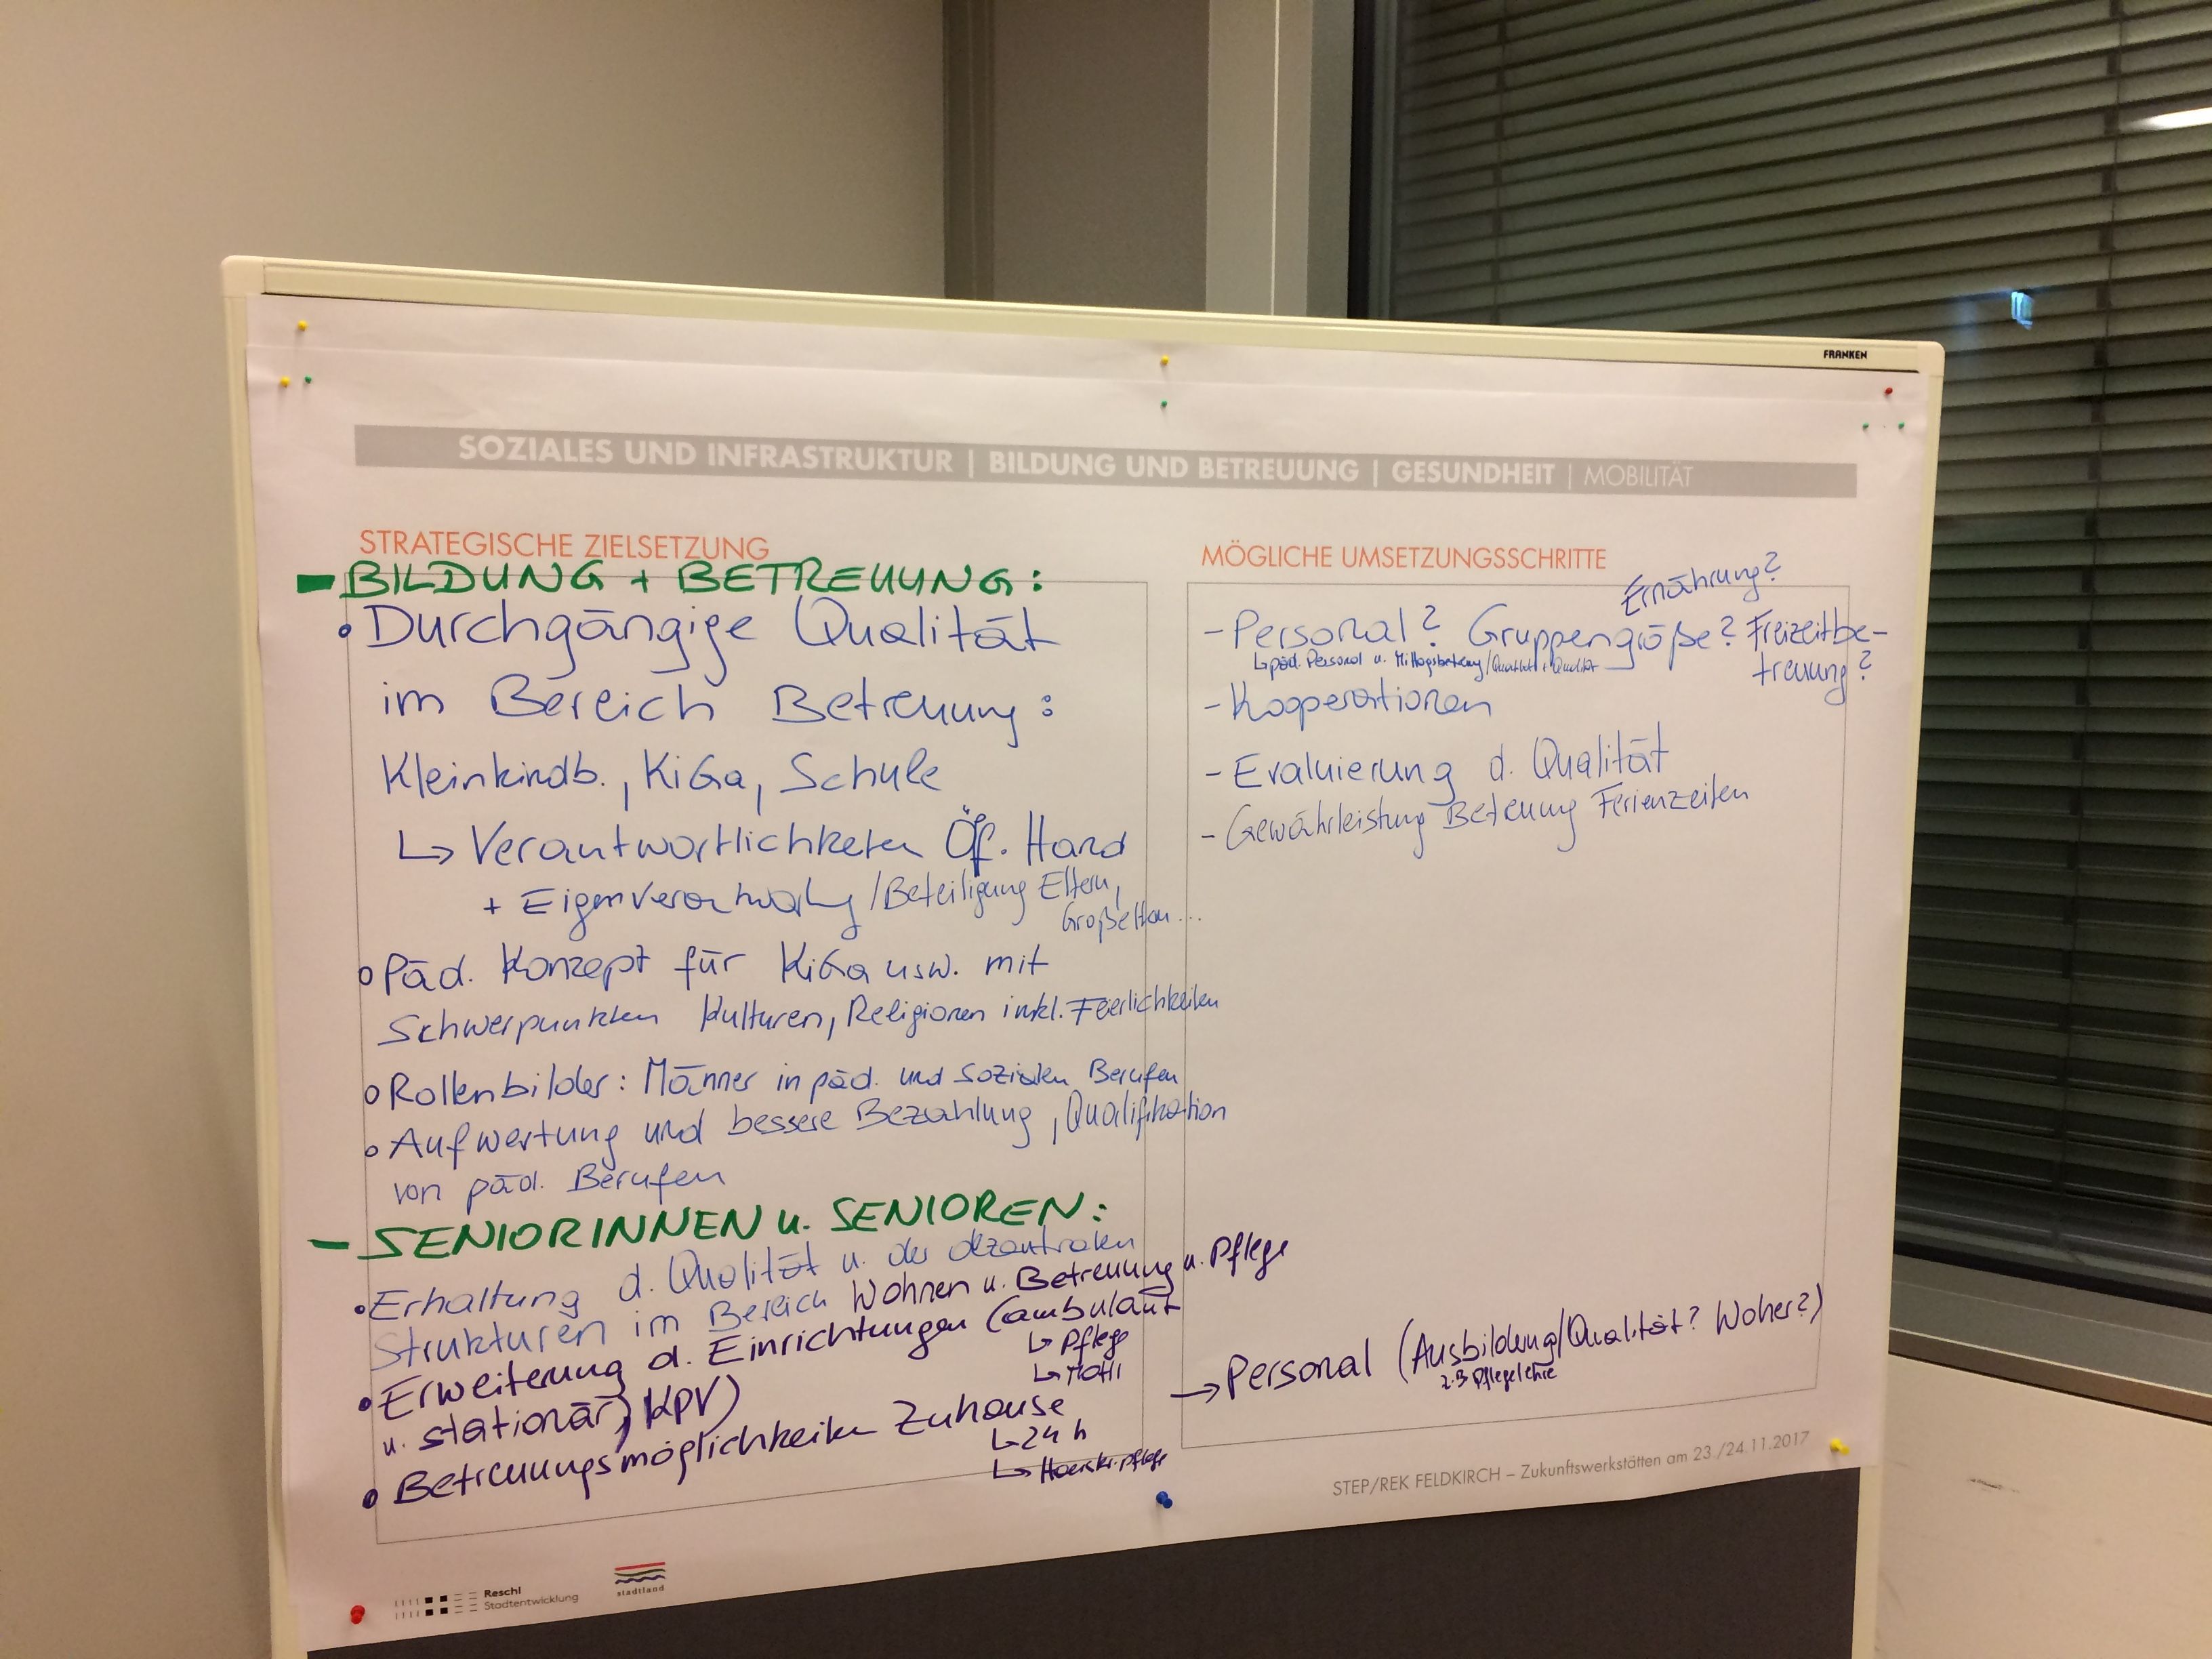 FRANKEN
SOZIALES UND INFRASTRUKTUR | BILDUNG UND BETREUUNG | GESUNDHEIT | MOBILITÄT
STRATEGISCHE ZIELSETZUNG
- BILDUNG + BETREUUNG:
• Durchgängige Qualität
im Bereich Betreuung:
Kleinkindb., KiGa, Schule
↳ Verantwortlichkeiten Öff. Hand
+ Eigenverantwortung / Beteiligung Eltern,
Großeltern ...
o Päd. Konzept für KiGa usw. mit
Schwerpunkten Kulturen, Religionen inkl. Feierlichkeiten
o Rollenbilder: Männer in päd. und sozialen Berufen
o Aufwertung und bessere Bezahlung, Qualifikation
von päd. Berufen
- SENIORINNEN u. SENIOREN:
• Erhaltung d. Qualität u. der dezentralen
Strukturen im Bereich Wohnen u. Betreuung u. Pflege
• Erweiterung d. Einrichtungen (ambulant
↳ Pflege
↳ MOHI
u. stationär, KPV)
• Betreuungsmöglichkeiten Zuhause
↳ 24 h
↳ Hauskr.pflege
MÖGLICHE UMSETZUNGSSCHRITTE
Ernährung?
- Personal? Gruppengröße? Freizeitbe-
treuung?
↳ päd. Personal u. Mittagsbetreuung /
- Kooperationen
- Evaluierung d. Qualität
- Gewährleistung Betreuung Ferienzeiten
→ Personal (Ausbildung/Qualität? Woher?)
z.B Pflegelehre
STEP/REK FELDKIRCH – Zukunftswerkstätten am 23./24.11.2017
Reschl
Stadtentwicklung
stadtland